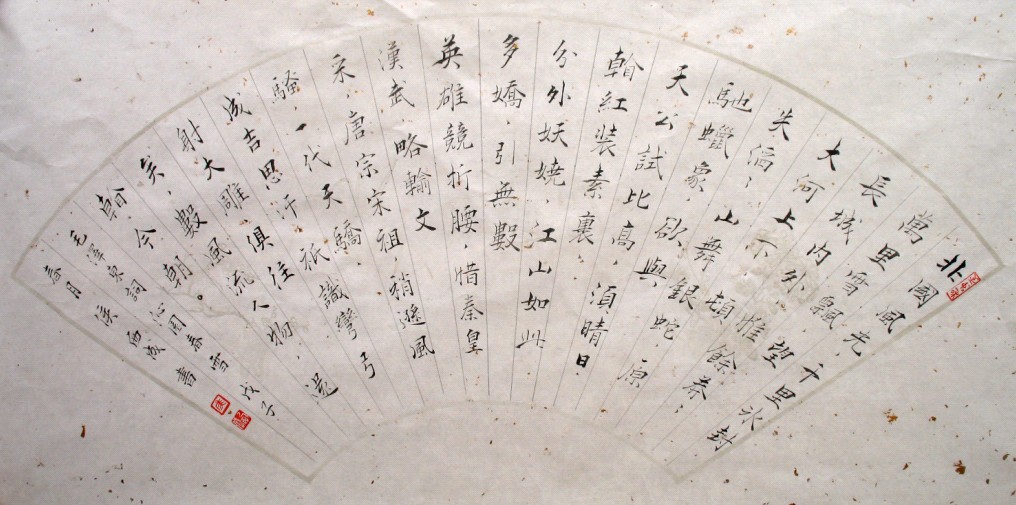 北國風光、千里冰封、
萬里雪飄、望
長城內外、惟餘莽、
大河上下、頓
失滔、、山舞銀蛇、原
馳蠟象、欲與
天公試比高、須晴日、
翰紅裝素裹、
分外妖嬈、江山如此
多嬌、引無數
英雄競折腰、惜秦皇
漢武、略輸文
采、唐宗宋祖、稍遜風
騷、一代天驕、
成吉思汗、祇識彎弓
射大雕、俱往
矣、數風流人物、還
翰今朝。
毛澤東詞沁園春雪 戊子
春月 侯西成書